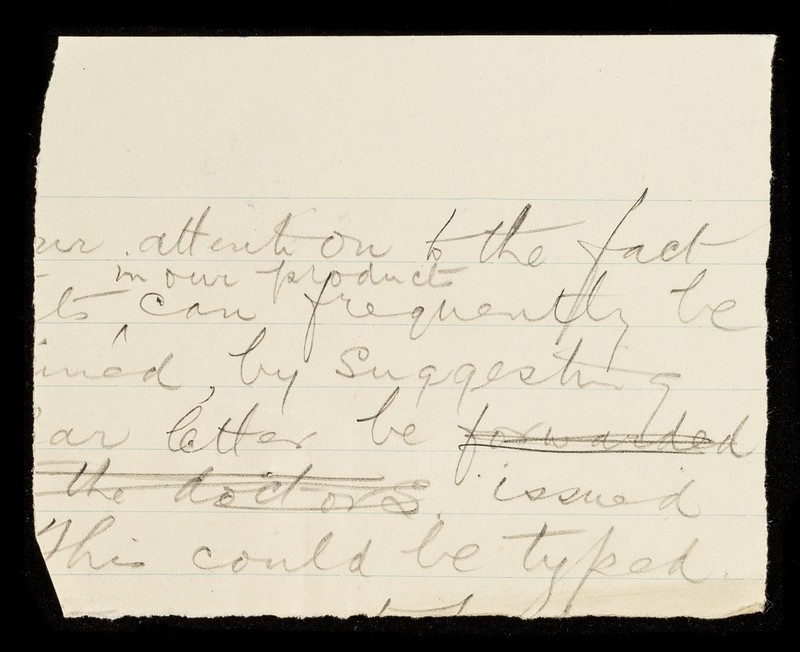 ur attention to the fact
in our products
ts can frequently be
ined, by Suggesting
ar letter be forwarded
the doctors. issued
This could be typed.